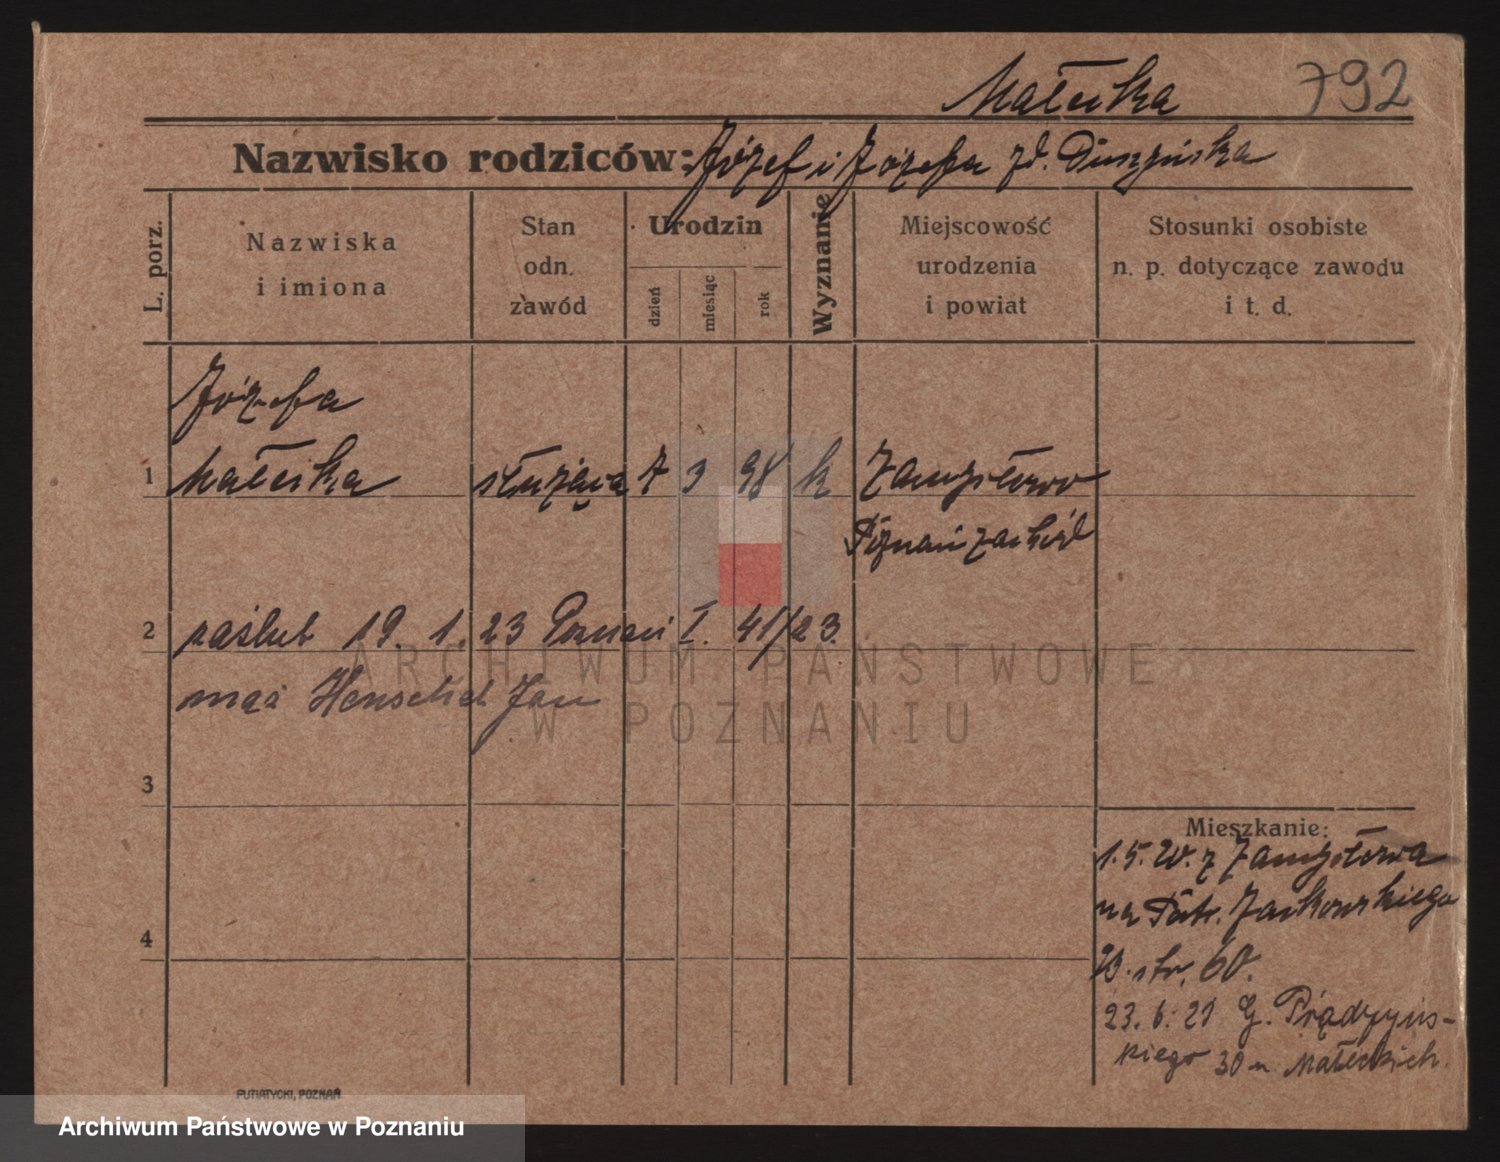 Małecka 792
Nazwisko rodziców: Józef i Józefa zd.
L. porz.
Nazwiska
i imiona
Stan
odn.
zawód
Urodzin
dzień
miesiąc
rok
Wyznanie
Miejscowość
urodzenia
i powiat
Stosunki osobiste
n. p. dotyczące zawodu
i t. d.
Józefa
1 Małecka służąca 7 3 98 k Zamysłowo
Poznań zachód
2 zaślub 19. 1. 23 Poznań I. 41/23.
mąż Henschel Jan
3
4
Mieszkanie:
1. 5. 20. z Zamysłowa
na Patr. Jackowskiego
str. 60.
23. 6. 21 G. Prądzyńs-
kiego 30 u Małeckich.
PUTIATYCKI, POZNAŃ
ARCHIWUM PAŃSTWOWE
W POZNANIU
Archiwum Państwowe w Poznaniu